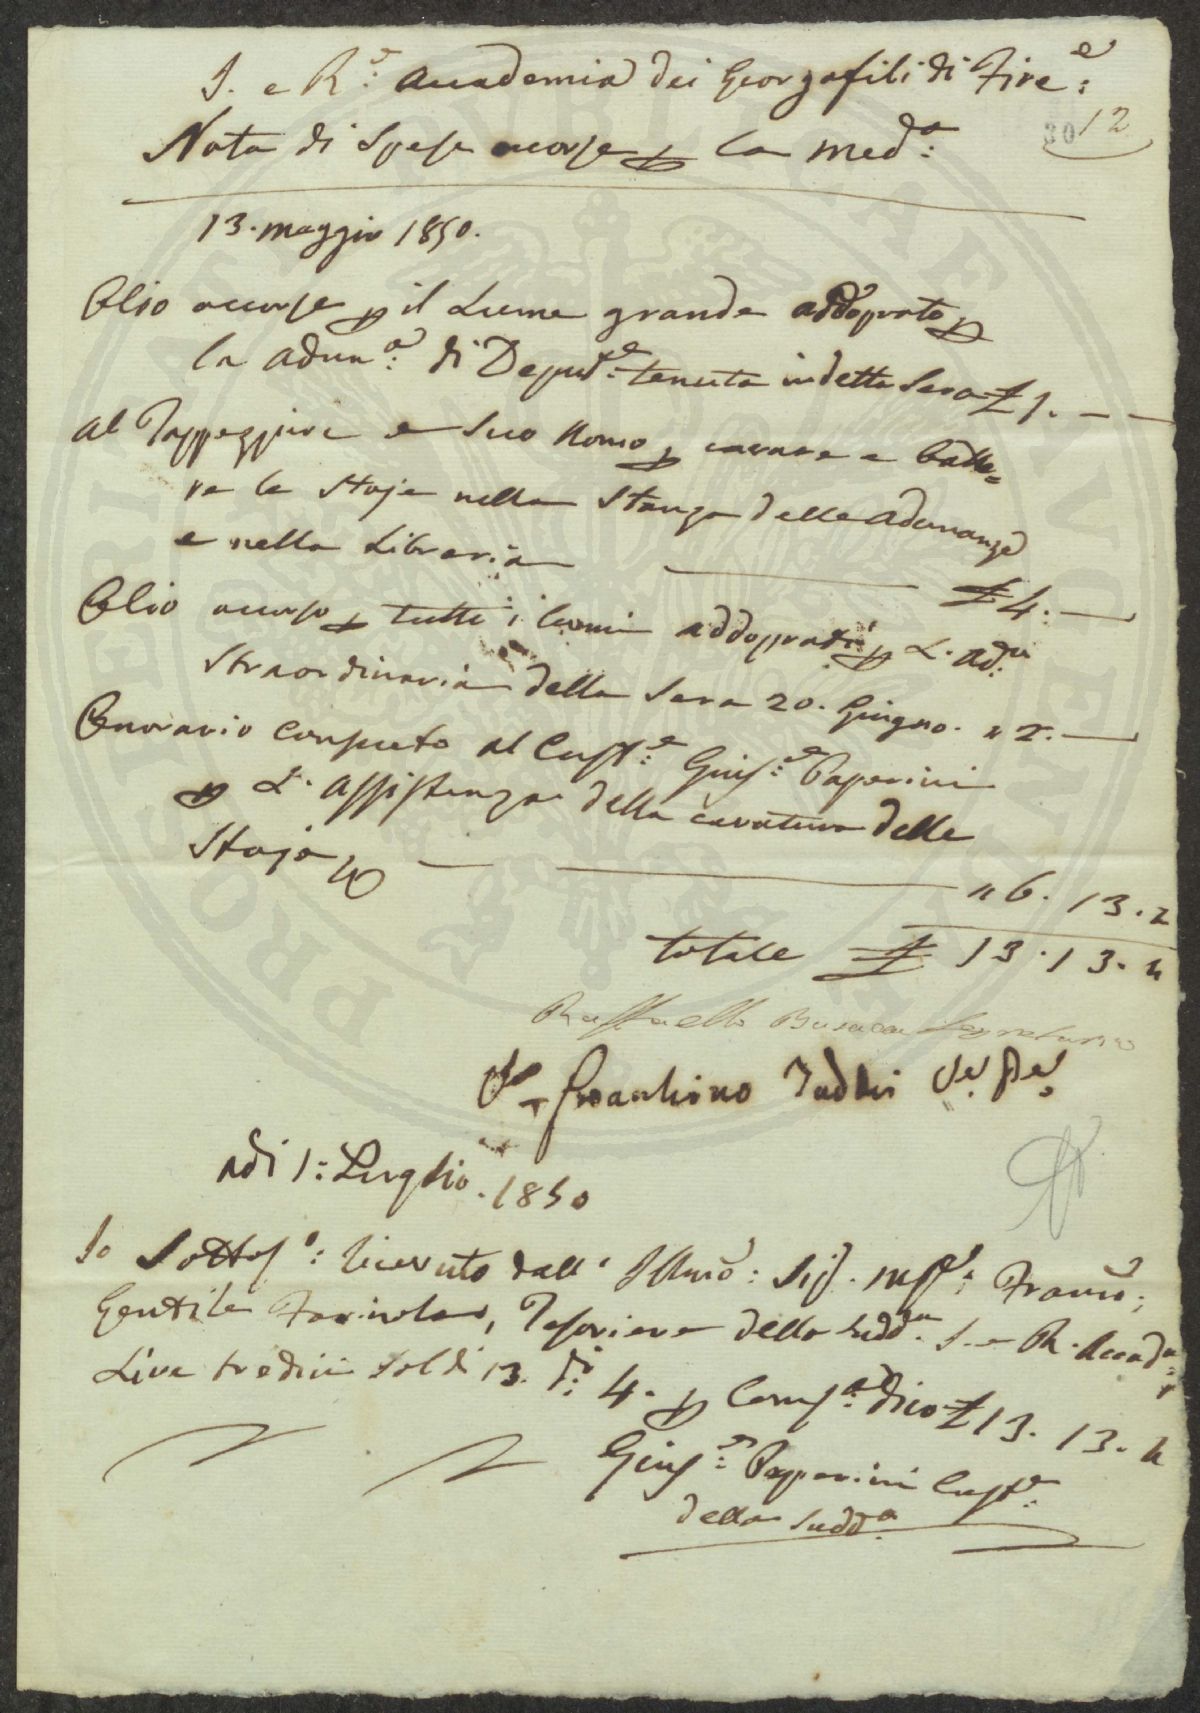 I. e R.e Accademia dei Georgofili di Fire.e
30 12
Nota di Spese occorse p la Med.a
13. Maggio 1850.
Olio occorso p il Lume grande addoprato p
la Adun.a di Deput.e tenuta in detta Sera £ 1. – –
Al Tappezziere e Suo Uomo p cavare e batte=
re le Stoje nella Stanza delle Adunanze
e nella Libreria £ 4. –
Olio occorso p tutti i lumi addoprati p L'Ad.a
Straordinaria della Sera 20. Giugno. " 2. –
Onorario Consueto al Cust.e Gius.e Paperini
p L'Assistenza della cavatura delle
Stoje " 6. 13. 4
totale £ 13. 13. 4
Raffaello Busacca Segretario
Gioacchino Taddei
adi 1: Luglio. 1850
Io Sottos.o: ricevuto dall' Illmo: Sig. Franco:
Gentile Farinola, Tesoriere della Sudd.a I. e R. Accad.a
Lire tredici Soldi 13. di 4. p Come S.a dico £ 13. 13. 4
Gius.e Paperini Cust.e
della Sudd.a